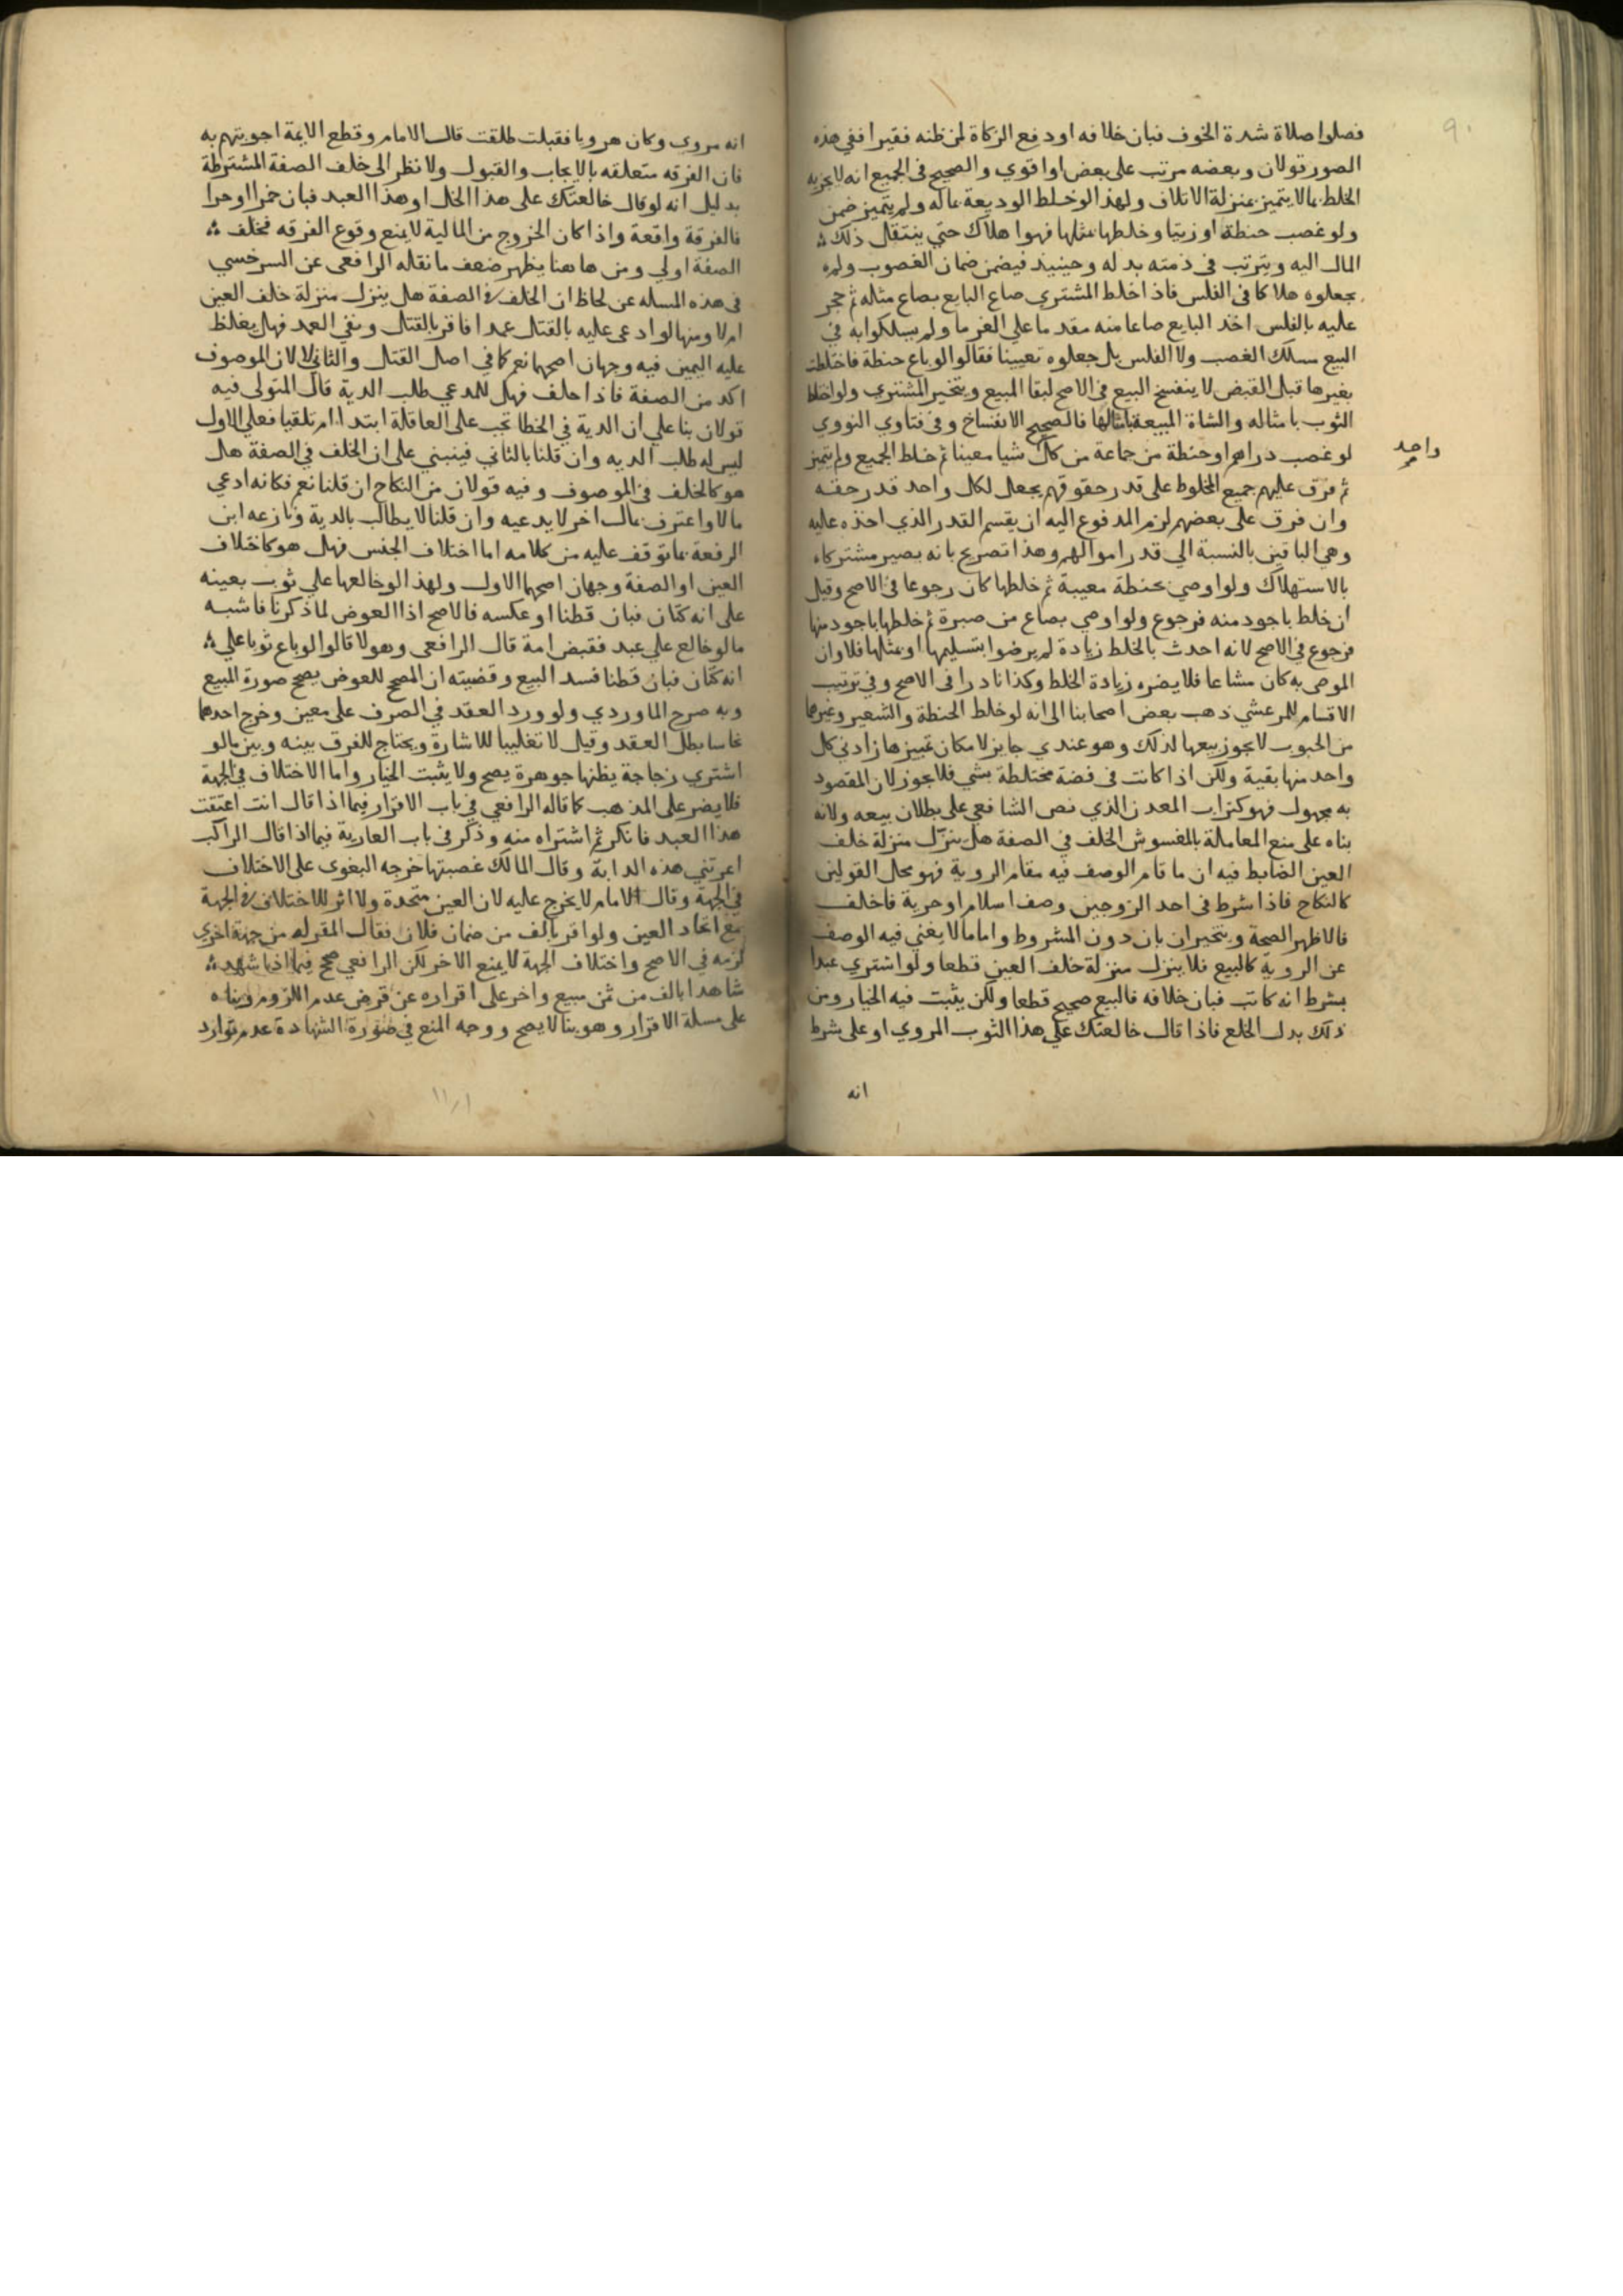 ٩٠
فصلوا صلاة شدة الخوف فبان خلافه او دفع الزكاة لمن ظنه فقيرا ففي هذه
الصور قولان وبعضه مرتب على بعض او اقوي والصحيح في الجميع انه لا يجزيه
الخلط بما لا يتميز بمنزلة الاتلاف ولهذا لو خلط الوديعة بماله ولم يتميز ضمن
ولو غصب حنطة او زيتا وخلطها بمثلها فهوا هلاك حتي ينتقل ذلك
المال اليه ويترتب في ذمته بدله وحينيذ فيضمن ضمان الغصوب ولم
يجعلوه هلاكا في الفلس فاذا خلط المشتري صاع البايع بصاع مثله ثم حجر
عليه بالفلس اخذ البايع صاعا منه مقدما على الغرما ولم يسلكوا به في
البيع مسلك الغصب ولا الفلس بل جعلوه تعيينا فقالوا لو باع حنطة فاختلطت
بغيرها قبل القبض لا ينفسخ البيع في الاصح لبقا المبيع ويتخير المشتري ولو اختلط
الثوب بامثاله والشاة المبيعة بامثالها فالصحيح الانفساخ وفي فتاوي النووي
لو غصب دراهم او حنطة من جماعة من كل شيا معينا ثم خلط الجميع ولم يتميز
واحد
ثم فرق عليهم جميع المخلوط على قدر حقوقهم يجعل لكل واحد قدر حقه
وان فرق على بعضهم لزم المدفوع اليه ان يقسم القدر الذي اخذه عليه
وهي الباقين بالنسبة الي قدر اموالهم وهذا تصريح بانه يصير مشتركاء
بالاستهلاك ولو اوصي بحنطة معيبة ثم خلطها كان رجوعا في الاصح وقيل
ان خلط باجود منه فرجوع ولو اوصي بصاع من صبرة ثم خلطها باجود منها
فرجوع في الاصح لانه احدث بالخلط زيادة لم يرضوا بتسليمها او بمثلها فلا وان
الموصى به كان مشاعا فلا يضره زيادة الخلط وكذا نادرا في الاصح وفي ترتيب
الاقسام للمرعشي ذهب بعض اصحابنا الى انه لو خلط الحنطة والشعير وغيرها
من الحبوب لا يجوز بيعها لذلك وهو عندي جايز لامكان تمييزها زاد في كل
واحد منها بقية ولكن اذا كانت في فضة مختلطة بشي فلا يجوز لان المقصود
به مجهول فهو كتراب المعدن الذي نص الشافعي على بطلان بيعه ولانه
بناه على منع المعاملة بالمغسوش الخلف في الصفة هل ينزل منزلة خلف
العين الضابط فيه ان ما قام الوصف فيه مقام الروية فهو محل القولين
كالنكاح فاذا شرط في احد الزوجين وصف اسلام او حرية فاخلف
فالاظهر الصحة ويتخير ان بان دون المشروط واما ما لا يغني فيه الوصف
عن الروية كالبيع فلا ينزل منزلة خلف العين قطعا ولو اشتري عبدا
بشرط انه كاتب فبان خلافه فالبيع صحيح قطعا ولكن يثبت فيه الخيار ومن
ذلك بدل الخلع فاذا قال خالعتك على هذا الثوب المروي او على شرط
انه
انه مروي وكان هرويا فقبلت طلقت قال الامام وقطع الايمة اجوبتهم به
فان الفرقه متعلقه بالايجاب والقبول ولا نظر الى خلف الصفة المشترطة
بدليل انه لو قال خالعتك على هذا الخل او هذا العبد فبان خمرا او حرا
فالفرقة واقعة واذا كان الخروج من المالية لا يمنع وقوع الفرقه فخلف
الصفة اولي ومن هاهنا يظهر ضعف ما نقله الرافعى عن السرخسي
في هذه المسله عن لحاظ ان الخلف في الصفة هل ينزل منزلة خلف العين
ام لا ومنها لو ادعى عليه بالقتل عمدا فاقر بالقتل ونفي العمد فهل يغلظ
عليه اليمين فيه وجهان اصحهما نعم كما في اصل القتل والثاني لا لان الموصوف
اكد من الصفة فاذا حلف فهل للمدعي طلب الدية قال المتولى فيه
قولان بنا علي ان الدية في الخطا تجب على العاقلة ابتدا ام تلقيا فعلي الاول
ليس له طلب الديه وان قلنا بالثاني فينبني على ان الخلف في الصفة هل
هو كالخلف في الموصوف وفيه قولان من النكاح ان قلنا نعم فكانه ادعي
مالا واعترف بمال اخر لا يدعيه وان قلنا لا يطالب بالدية ونازعه ابن
الرفعة بما توقف عليه من كلامه اما اختلاف الجنس فهل هو كاختلاف
العين او الصفة وجهان اصحهما الاول ولهذا لو خالعها علي ثوب بعينه
على انه كتان فبان قطنا او عكسه فالاصح اذا العوض لما ذكرنا فاشبه
ما لو خالع علي عبد فقبض امة قال الرافعى وهولا قالوا لو باع ثوبا علي
انه كتان فبان قطنا فسد البيع وقضيته ان المصحح للعوض يصحح صورة المبيع
وبه صرح الماوردي ولو ورد العقد في الصرف على معين وخرج احدهما
نحاسا بطل العقد وقيل لا تغليبا للاشارة ويحتاج للفرق بينه وبين ما لو
اشتري زجاجة يظنها جوهرة يصح ولا يثبت الخيار واما الاختلاف في الجهة
فلا يضر على المذهب كما قاله الرافعي في باب الاقرار فيما اذا قال انت اعتقت
هذا العبد فانكر ثم اشتراه منه وذكر في باب العارية فيما اذا قال الراكب
اعرتني هذه الدابة وقال المالك غصبتها خرجه البغوي على الاختلاف
في الجهة وقال الامام لا يخرج عليه لان العين متحدة ولا اثر للاختلاف في الجهة
مع اتحاد العين ولو اقر بالف من ضمان فلان فقال المقر له من جهة اخري
لزمه في الاصح واختلاف الجهة لا يمنع الاخر لكن الرافعي صحح فيما اذا شهد
شاهد بالف من ثمن مبيع واخر على اقراره عن قرض عدم اللزوم وبناه
على مسلة الاقرار وهو بنا لا يصح ووجه المنع في صورة الشهادة عدم توارد